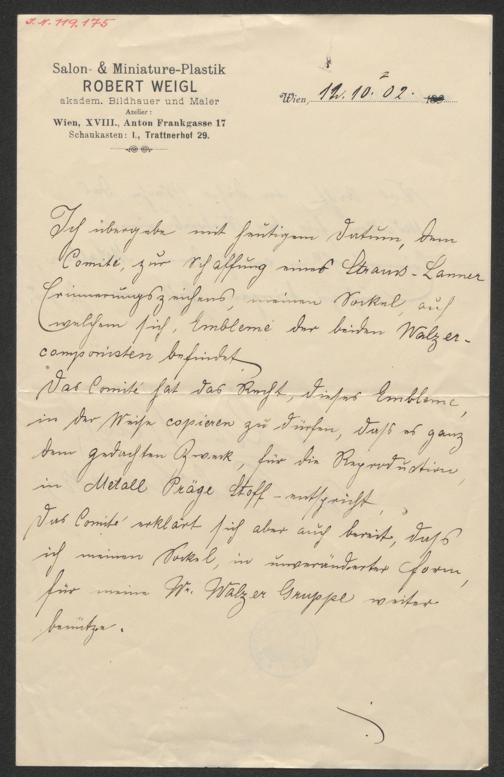 J. N. 119.175
Salon- & Miniature-Plastik
ROBERT WEIGL
akadem. Bildhauer und Maler
Atelier:
Wien, XVIII., Anton Frankgasse 17
Schaukasten: I., Trattnerhof 29.
Wien, 12. 10. 02.
Ich übergebe mit heutigem Datum, dem
Comité, zur Schaffung eines Strauss-Lanner
Erinnerungszeichens, meinen Sockel, auf
welchem sich, Embleme der beiden Walzer-
componisten befindet.
Das Comité hat das Recht, dieses Embleme,
in der Weise copieren zu dürfen, dass es ganz
dem gedachten Zweck, für die Reproduction,
in Metall Präge Stoff - entspricht,
Das Comité erklärt sich aber auch bereit, dass
ich meinen Sockel, in unveränderter Form,
für meine Wr. Walzer Gruppe weiter
benütze.